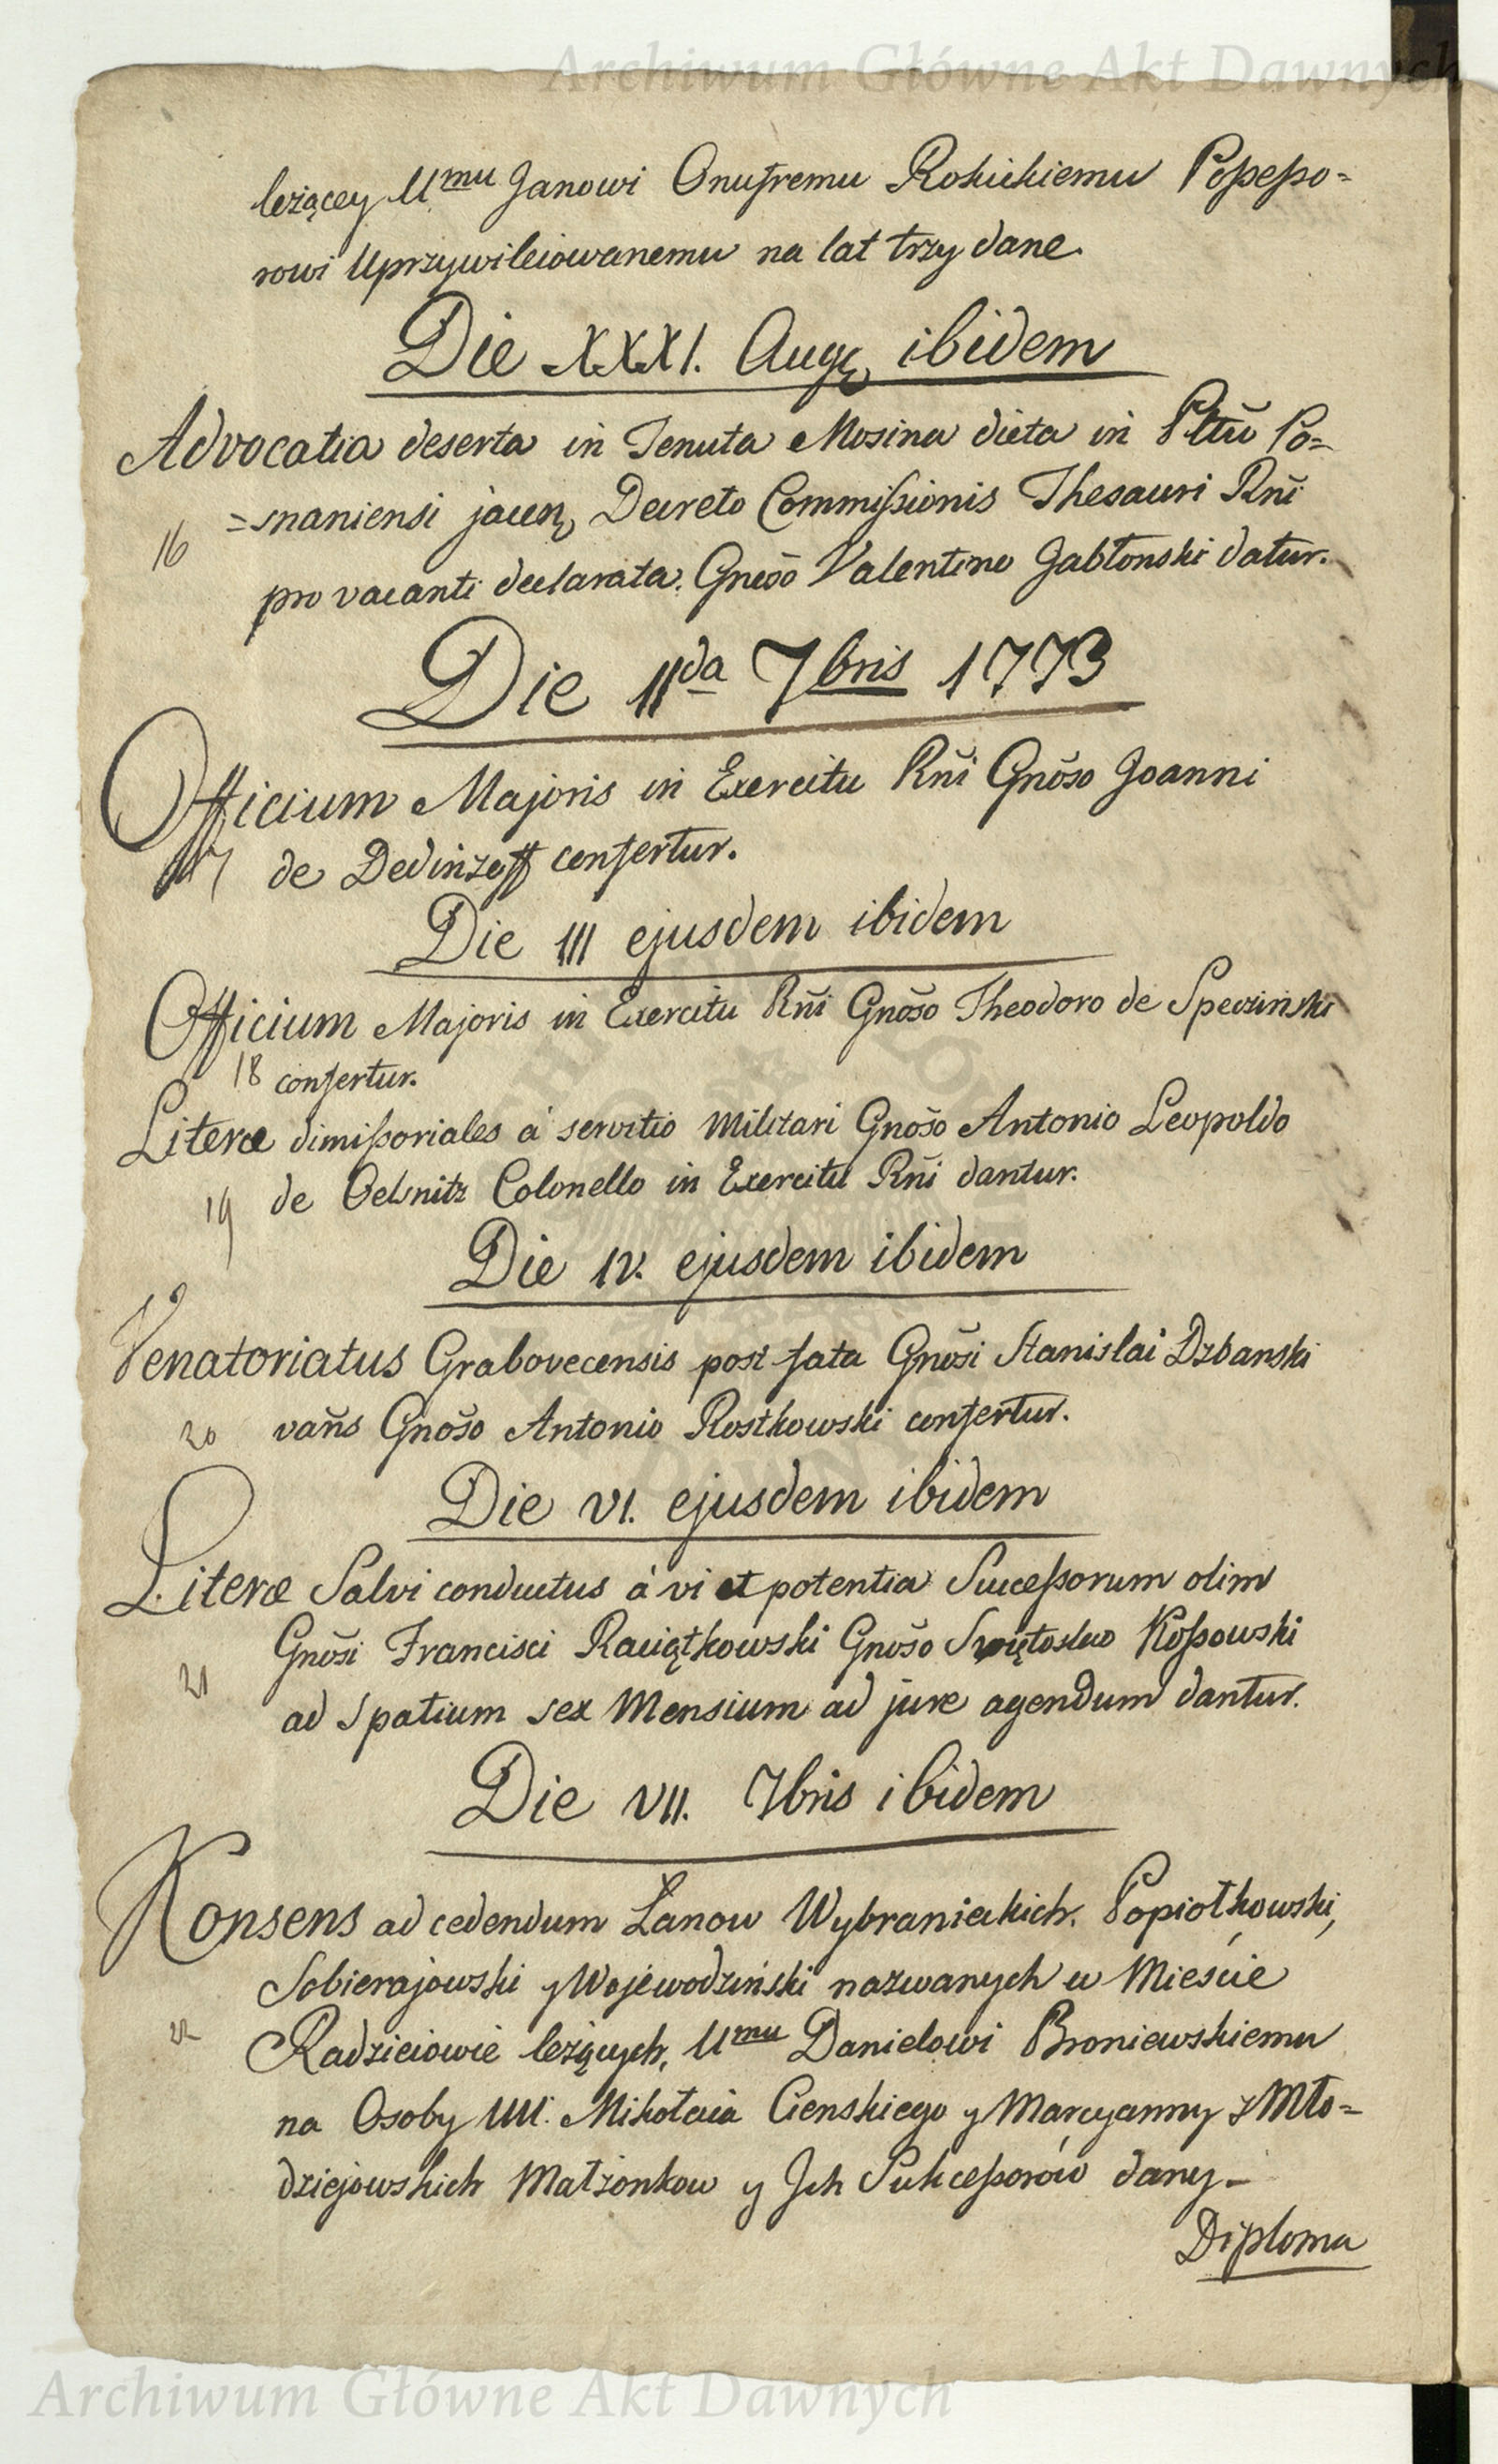 Archiwum Główne Akt Dawnych
leżącey Umu Janowi Onufremu Rokickiemu Possesso=
rowi Uprzywileiowanemu na lat trzy dane.
Die XXXI. Augę ibidem
Advocatia deserta in Tenuta Mosina dicta in Pltũ Po=
=snaniensi jacen, Decreto Commissionis Thesauri Rñi
16
pro vacanti declarata. Gnoso Valentino Jabłonski datur.
Die IIda 7bris 1773
Officium Majoris in Exercitu Rñi Gnõso Joanni
17 de Dedinzoff confertur.
Die III ejusdem ibidem
Officium Majoris in Exercitu Rñi Gnõso Theodoro de Spedzinski
18 confertur.
Literæ dimissoriales à servitio Militari Gnõso Antonio Leopoldo
19 de Oelsnitz Colonello in Exercitu Rñi dantur.
Die IV. ejusdem ibidem
Venatoriatus Grabovecensis post fata Gnõsi Stanislai Dzbanski
20 vañs Gnõso Antonio Rostkowski confertur.
Die VI. ejusdem ibidem
Literæ Salvi conductus à vi et potentia Successorum olim
Gnõsi Francisci Raciążkowski Gnõso Swiętoslao Kossowski
21
ad spatium sex Mensium ad jure agendum dantur.
Die VII. 7bris ibidem
Konsens ad cedendum Łanow Wybranieckich. Popiołkowski,
Sobierajowski y Wojewodziński nazwanych w Mieście
22
Radzieiowie leżących, Umu Danielowi Broniewskiemu
na Osoby UU. Mikołaia Cienskiego y Marcyanny z Mło=
dziejowskich Małżonkow y Jch Sukcessorów dany_
Diploma
Archiwum Główne Akt Dawnych